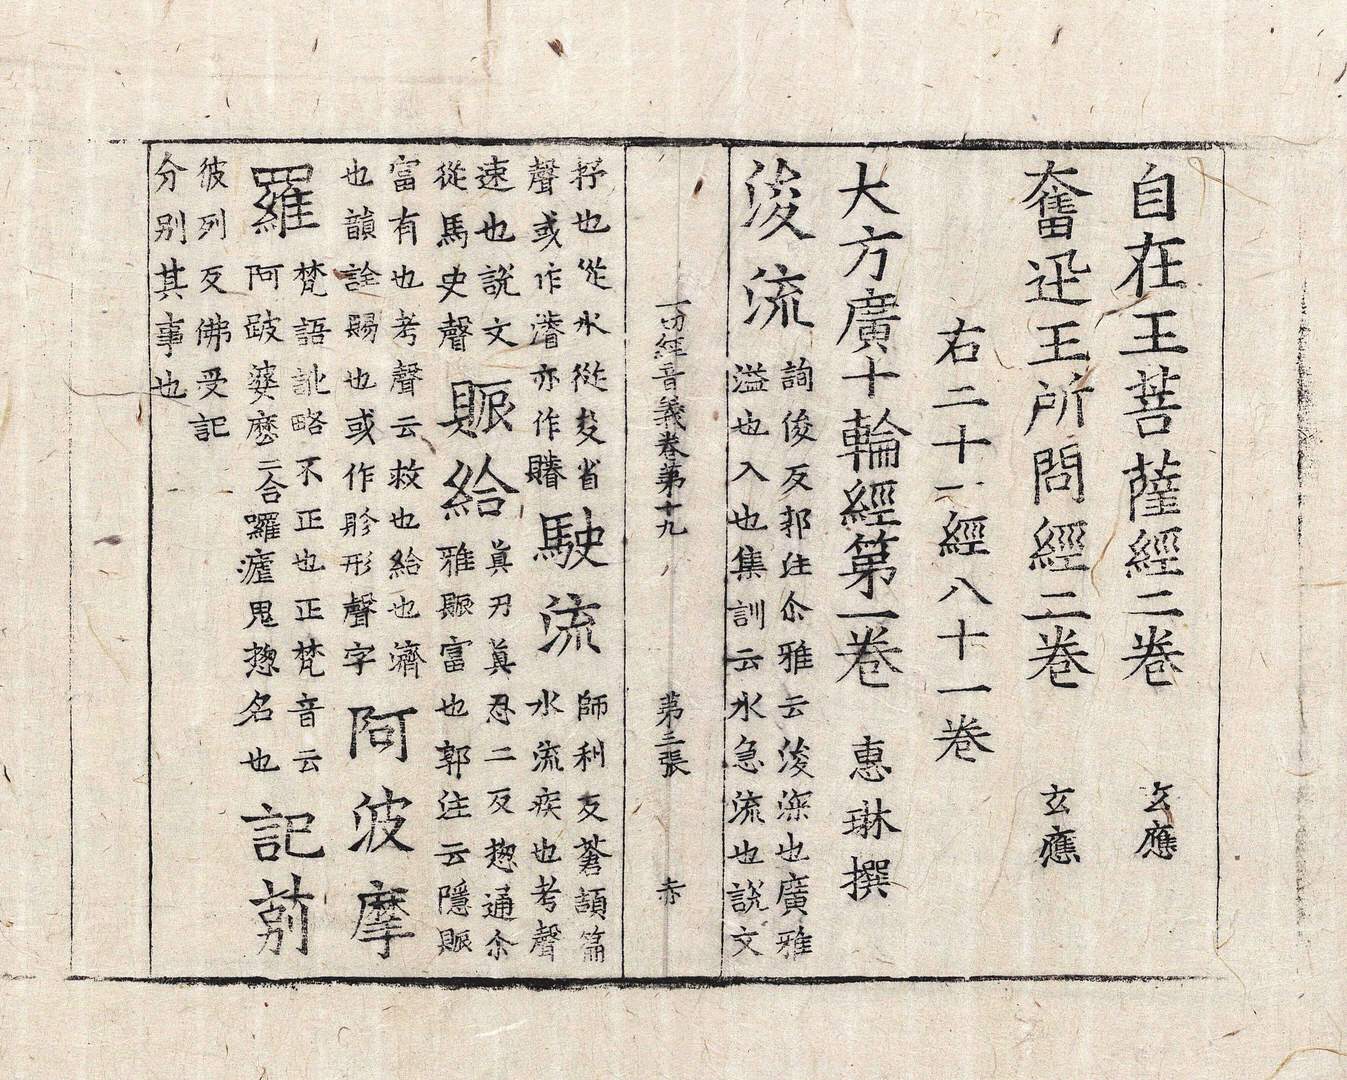 自在王菩薩經二卷 玄應
奮迅王所問經二卷 玄應
右二十一經八十一卷
大方廣十輪經第一卷 惠琳撰
浚流
詢俊反郭注尒雅云浚深也廣雅
溢也入也集訓云水急流也說文
一切經音義卷第十九 第三張 赤
抒也從水從夋省
聲或作濬亦作㻸
駛流
師利反蒼頡篇
水流疾也考聲
速也說文
從馬史聲
賑給
真刃真忍二反揔通尒
雅賑富也郭注云隱賑
富有也考聲云救也給也濟
也韻詮賜也或作䀼形聲字
阿波摩
羅
梵語訛略不正也正梵音云
阿跛婆麽二合囉瘧鬼揔名也
記莂
彼列反佛受記
分別其事也